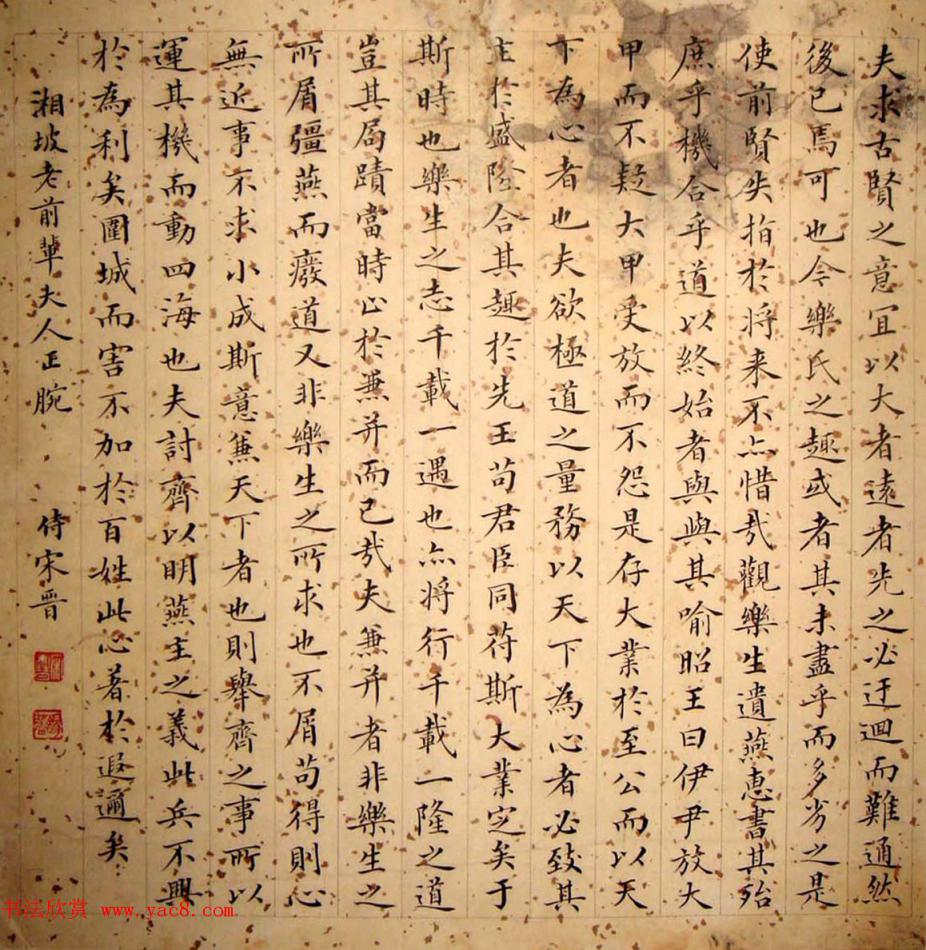 夫求古賢之意宜以大者遠者先之必迂迴而難通然
後已馬可也今樂氏之趣或者其未盡乎而多劣之是
使前賢失指於将来不亦惜哉觀樂生遺燕惠書其殆
庶乎機合乎道以終始者與與其喻昭王曰伊尹放大
甲而不疑大甲受放而不怨是存大業於至公而以天
下為心者也夫欲極道之量務以天下為心者必致其
主於盛隆合其趣於先王苟君臣同苻斯大業定矣于
斯時也樂生之志千載一遇也亦将行千載一隆之道
豈其局蹟當時止於兼并而已哉夫兼并者非樂生之
所屑彊燕而廢道又非樂生之所求也不屑苟得則心
無近事不求小成斯意兼天下者也則舉齊之事所以
運其機而動四海也夫討齊以明燕主之義此兵不興
於為利矣圍城而害不加於百姓此心著於遐邇矣
湘坡老前輩夫人正腕 侍宋晋
书法欣赏 www.yac8.com